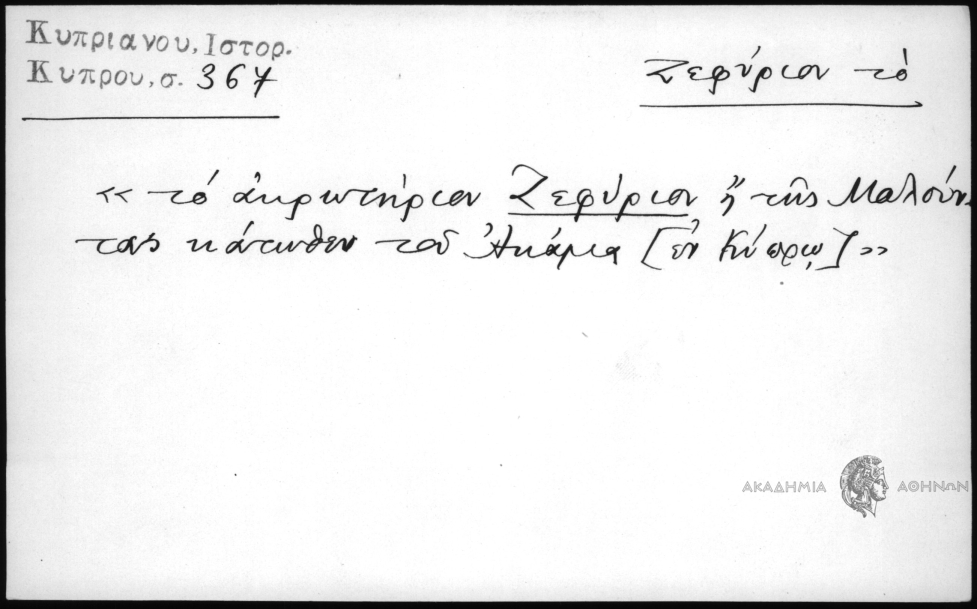 Κυπριανου, Ιστορ.
Κυπρου, σ. 367
Ζεφύριον τὸ
«τό ἀκρωτήριον Ζεφύριον ἤ τῆς Μαλούν-
τας κάτωθεν τοῦ Ἀκάμα [ἐν Κύπρῳ]»
ΑΚΑΔΗΜΙΑ ΑΘΗΝΩΝ